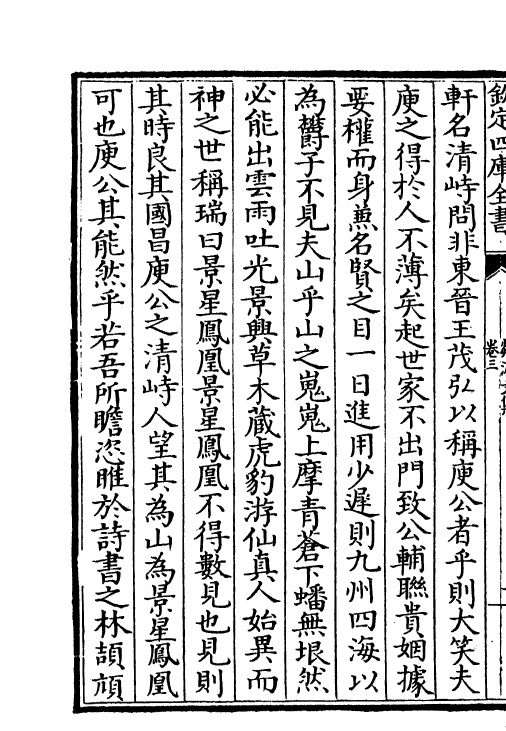 欽定四庫全書
卷三
軒名清峙問非東晉王茂弘以稱庾公者乎則大笑夫
庾之得於人不薄矣起世家不出門致公輔聯貴姻據
要權而身兼名賢之目一日進用少遲則九州四海以
為欝子不見夫山乎山之嵬嵬上摩青蒼下蟠無垠然
必能出雲雨吐光景興草木蔵虎豹游仙真人始異而
神之世稱瑞曰景星鳳凰景星鳳凰不得數見也見則
其時良其國昌庾公之清峙人望其為山為景星鳳凰
可也庾公其能然乎若吾所瞻恣睢於詩書之林頡頏